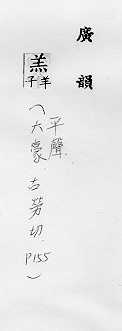 廣韻
羔
羊子
（平聲
六豪．古勞切．P155）